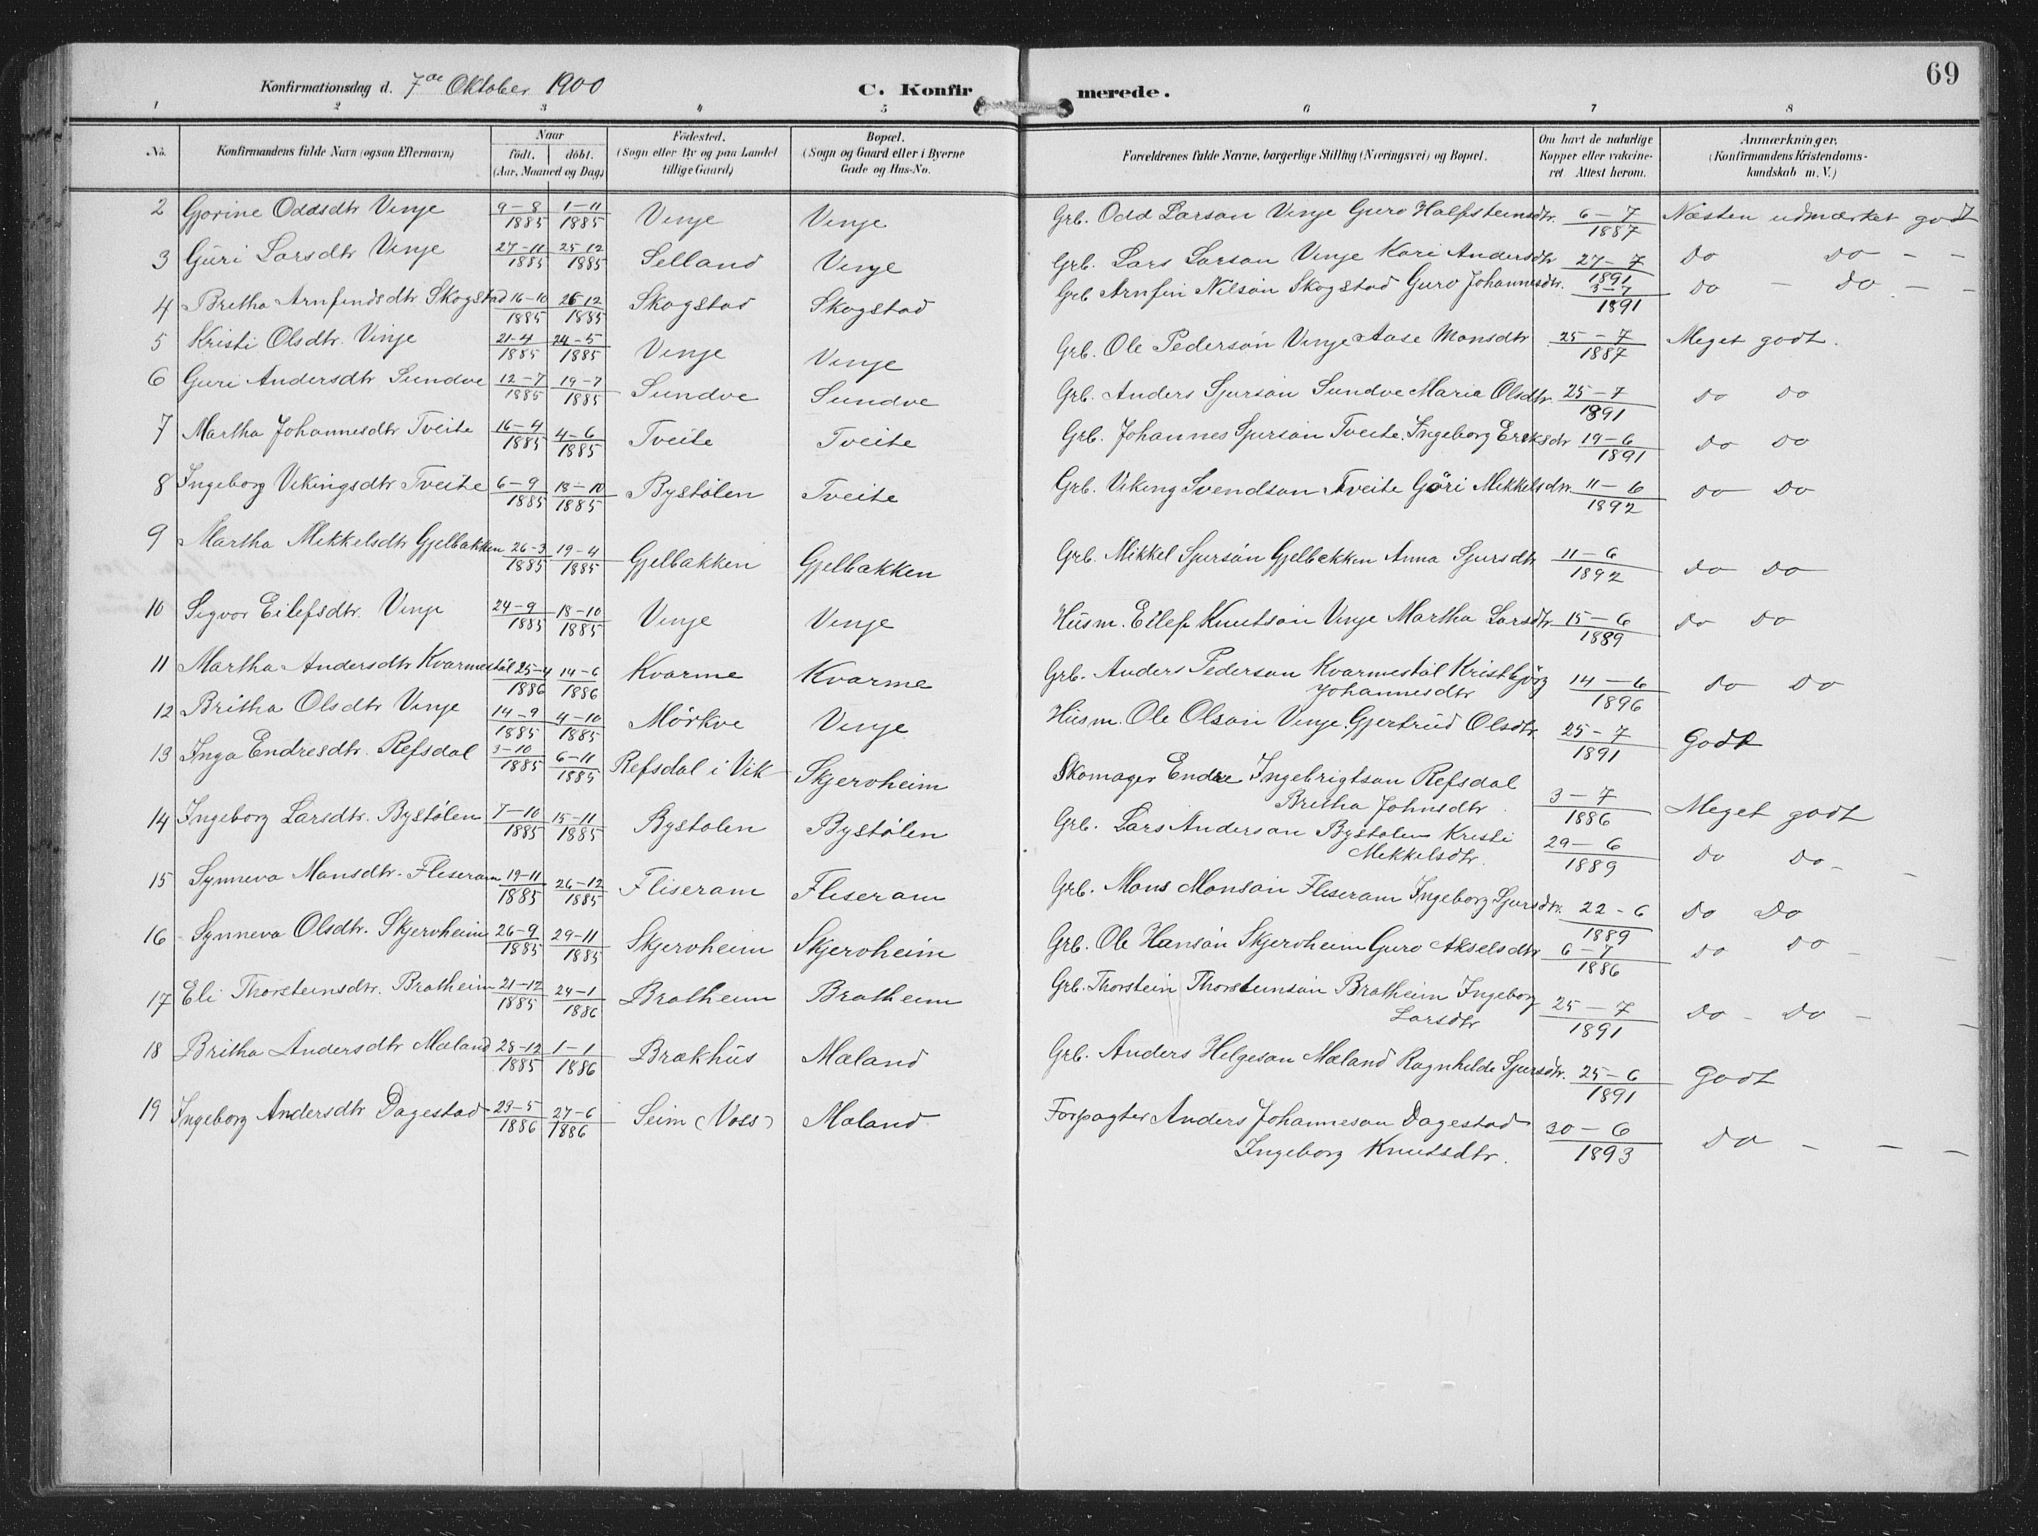 69
Konfirmationsdag d. 7de Oktober 1900 C. Konfirmerede.
1 2 3 4 5 6 7 8
No. Konfirmandens fulde Navn (ogsaa Efternavn) Naar født. døbt. (Aar, Maaned og Dag) Födested. (Sogn eller By og paa Landet tillige Gaard) Bopæl. (Sogn og Gaard eller i Byerne Gade og Hus-No. Forældrenes fulde Navne, borgerlige Stilling (Næringsvei) og Bopæl. Om havt de naturlige Kopper eller vakcineret. Attest herom. Anmærkninger. (Konfirmandens Kristendomskundskab m. V.)
2 Gjorine Oddsdtr Vinje 9-8 1885 1-11 1885 Vinje Vinje Grb. Odd Larson Vinje Guro Halfsteinsdtr. 6-7 1887 Næsten udmærket godt
3 Guri Larsdtr Vinje 27-11 1885 25-12 1885 Selland Vinje Grb. Lars Larson Vinje Kari Andersdtr 27-7 1891 Do Do - -
4 Britha Arnfindsdtr Skogstad 16-10 1885 26-12 1885 Skogstad Skogstad Grb Arnfin Nilson Skogstad Guro Johannesdtr. 3-7 1891 Do - Do - -
5 Kristi Olsdtr. Vinje 21-4 1885 24-5 1885 Vinje Vinje Grb. Ole Pederson Vinje Aase Monsdtr 25-7 1887 Meget godt.
6 Guri Andersdtr Sundve 12-7 1885 19-7 1885 Sundve Sundve Grb. Anders Sjurson Sundve Marie Olsdtr. 25-7 1891 Do Do
7 Martha Johannesdtr Tveite 16-4 1885 4-6 1885 Tveite Tveite Grb. Johannes Sjurson Tveite. Ingeborg Eriksdtr 19-6 1891 Do Do
8 Ingeborg Vikingsdtr Tveite 6-9 1885 18-10 1885 Bystølen Tveite Grb. Viking Svendson Tveite Göri Mikkelsdtr. 11-6 1892 Do Do
9 Martha Mikkelsdtr Gjelbakken 26-3 1885 19-4 1885 Gjelbakken Gjelbakken Grb. Mikkel Sjurson Gjelbakken Anna Sjursdtr 11-6 1892 Do Do
10 Sigvor Eilefsdtr. Vinje 24-9 1885 18-10 1885 Vinje Vinje Husm. Eilef Knutson Vinje Martha Larsdtr. 15-6 1889 Do Do
11 Martha Andersdtr Kvarmestøl 25-4 1886 14-6 1886 Kvarme Kvarme Grb. Anders Pederson Kvarmestøl Kristbjörg
Johannesdtr 14-6 1896 Do Do
12 Britha Olsdtr Vinje 14-9 1885 4-10 1885 Mørkve Vinje Husm. Ole Olson Vinje. Gjertrud Olsdtr. 25-7 1891 Godt
13 Inga Endresdtr. Refsdal 3-10 1885 6-11 1885 Refsdal i Vik Skjervheim Skomager Endre Ingebrigtson Refsdal
Britha Johnsdtr. 3-7 1886 Meget godt
14 Ingeborg Larsdtr. Bystølen 7-10 1885 15-11 1885 Bystolen Bystølen Grb. Lars Anderson Bystolen Kristi
Mikkelsdtr. 29-6 1889 Do Do - -
15 Synneva Monsdtr. Fliseram 19-11 1885 26-12 1885 Fliseram Fliseram Grb. Mons Monson Fliseram Ingeborg Sjursdtr. 22-6 1889 Do Do
16 Synneva Olsdtr. Skjervheim 26-9 1885 29-11 1885 Skjervheim Skjervheim Grb. Ole Hanson Skjervheim Guro Akselsdtr 6-7 1886 Do Do - -
17 Eli Thorsteinsdtr. Bratheim 21-12 1885 24-1 1886 Bratheim Bratheim Grb. Thorstein Thorsteinson Bratheim Ingeborg
Larsdtr 25-7 1891 Do - Do - -
18 Britha Andersdtr Mæland 28-12 1885 1-1 1886 Brækhus Mæland Grb. Anders Helgeson Mæland Ragnhilde Sjursdtr. 25-6 1891 Godt
19 Ingeborg Andersdtr Dagestad 29-5 1886 27-6 1886 Seim (Voss) Mæland Forpagter Anders Johanneson Dagestad
Ingeborg Knutsdtr. 30-6 1893 Do - - -